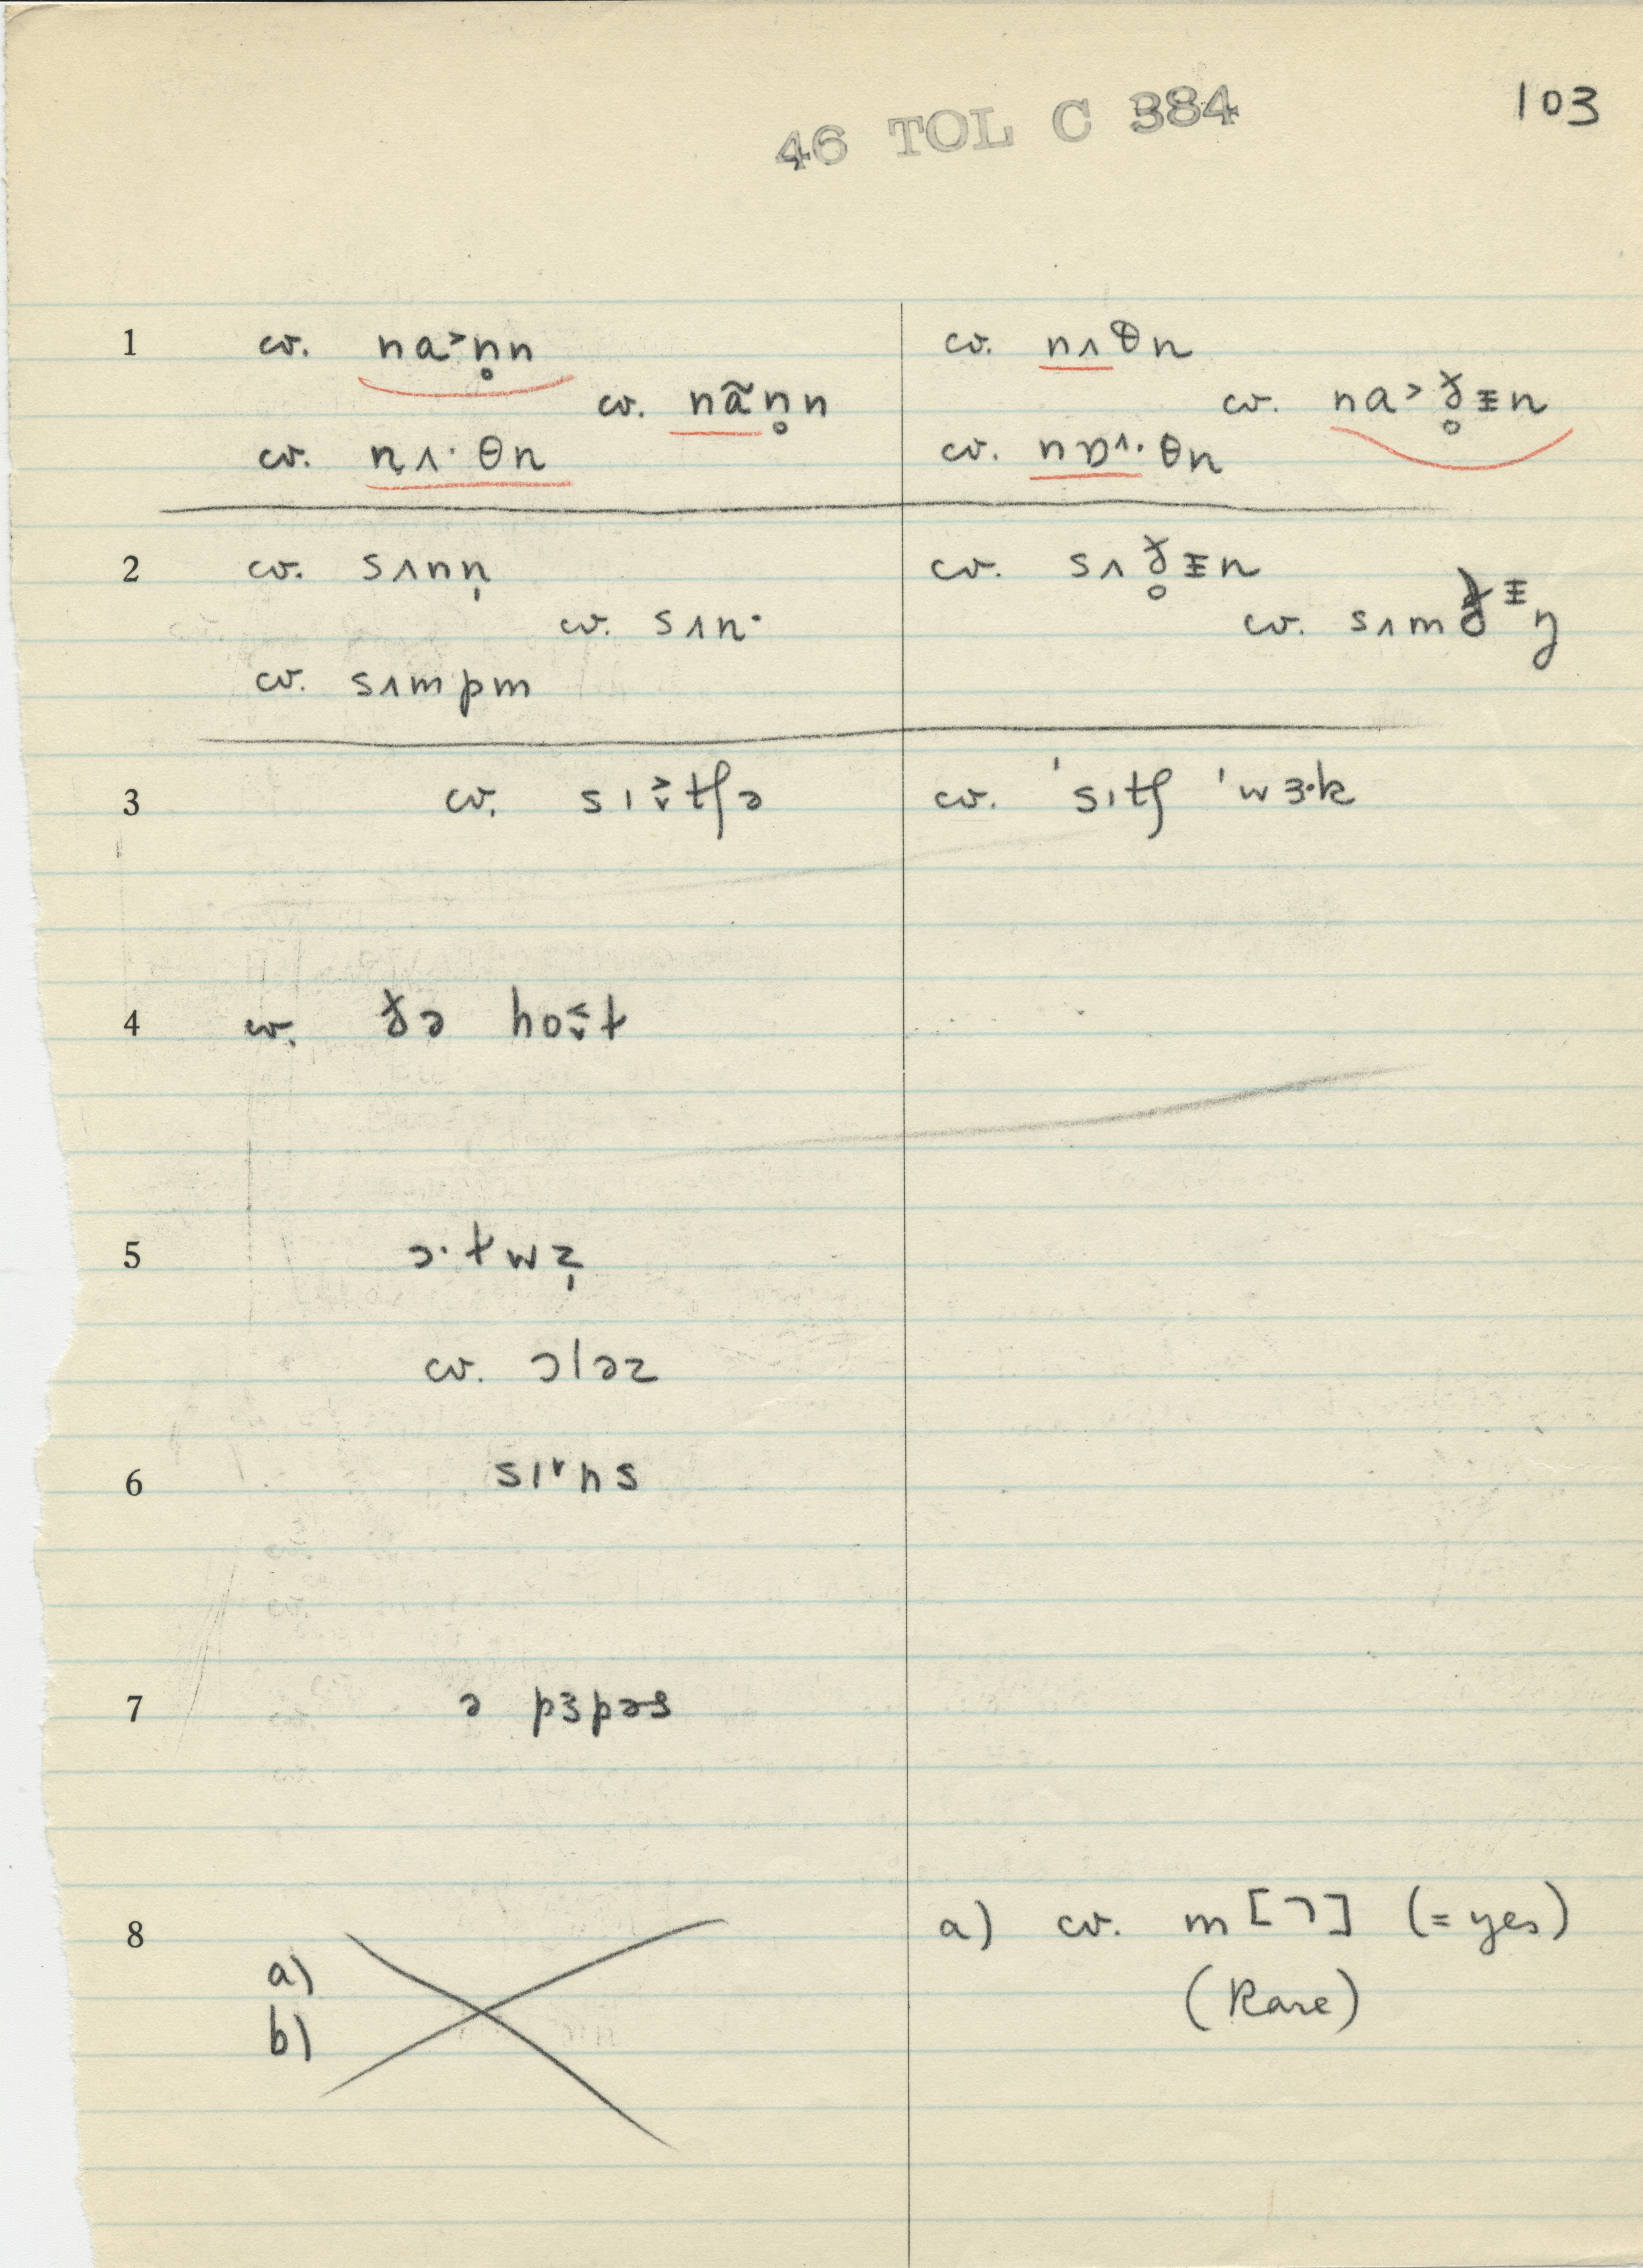 46 TOL C 384
103
1 cv. na˃n̥n cv. nʌθn
cv. nãn̥n cv. na˃ɣ̥ɪn
cv. nʌ· θn cv. nɒʌ· θn
2 cv. sʌnn̩ cv. sʌɣ̥ɪn
cv. sʌn· cv. sʌm
cv. sʌmpm
3 cv. sɪtʃə cv. ˈsɪtʃ ˈwɜ·k
4 cv. hot
5 ɔ·twz̩
cv. ɔləz
6 sɪns
7 ə pɜpəs
8 a) cv. m [ ˥ ] (= yes)
a) (Rare)
b)